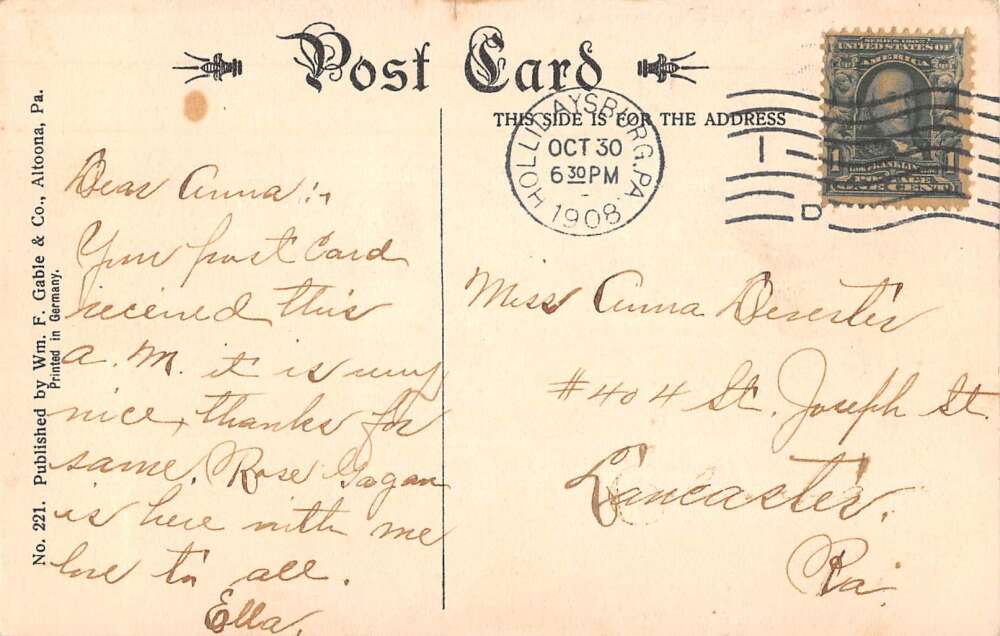 Post Card
THIS SIDE IS FOR THE ADDRESS
HOLLIDAYSBURG, PA.
OCT 30
6 30 PM
1908
D
SERIES 1902
UNITED STATES OF
AMERICA
FRANKLIN
POSTAGE
1 ONE CENT 1
No. 221. Published by Wm. F. Gable & Co., Altoona, Pa.
Printed in Germany.
Dear Anna:-
Your post card
received this
a.m. it is very
nice, thanks for
same. Rose Gagan
is here with me
love to all.
Ella.
Miss Anna
#404 St. Joseph St.
Lancaster.
Pa.